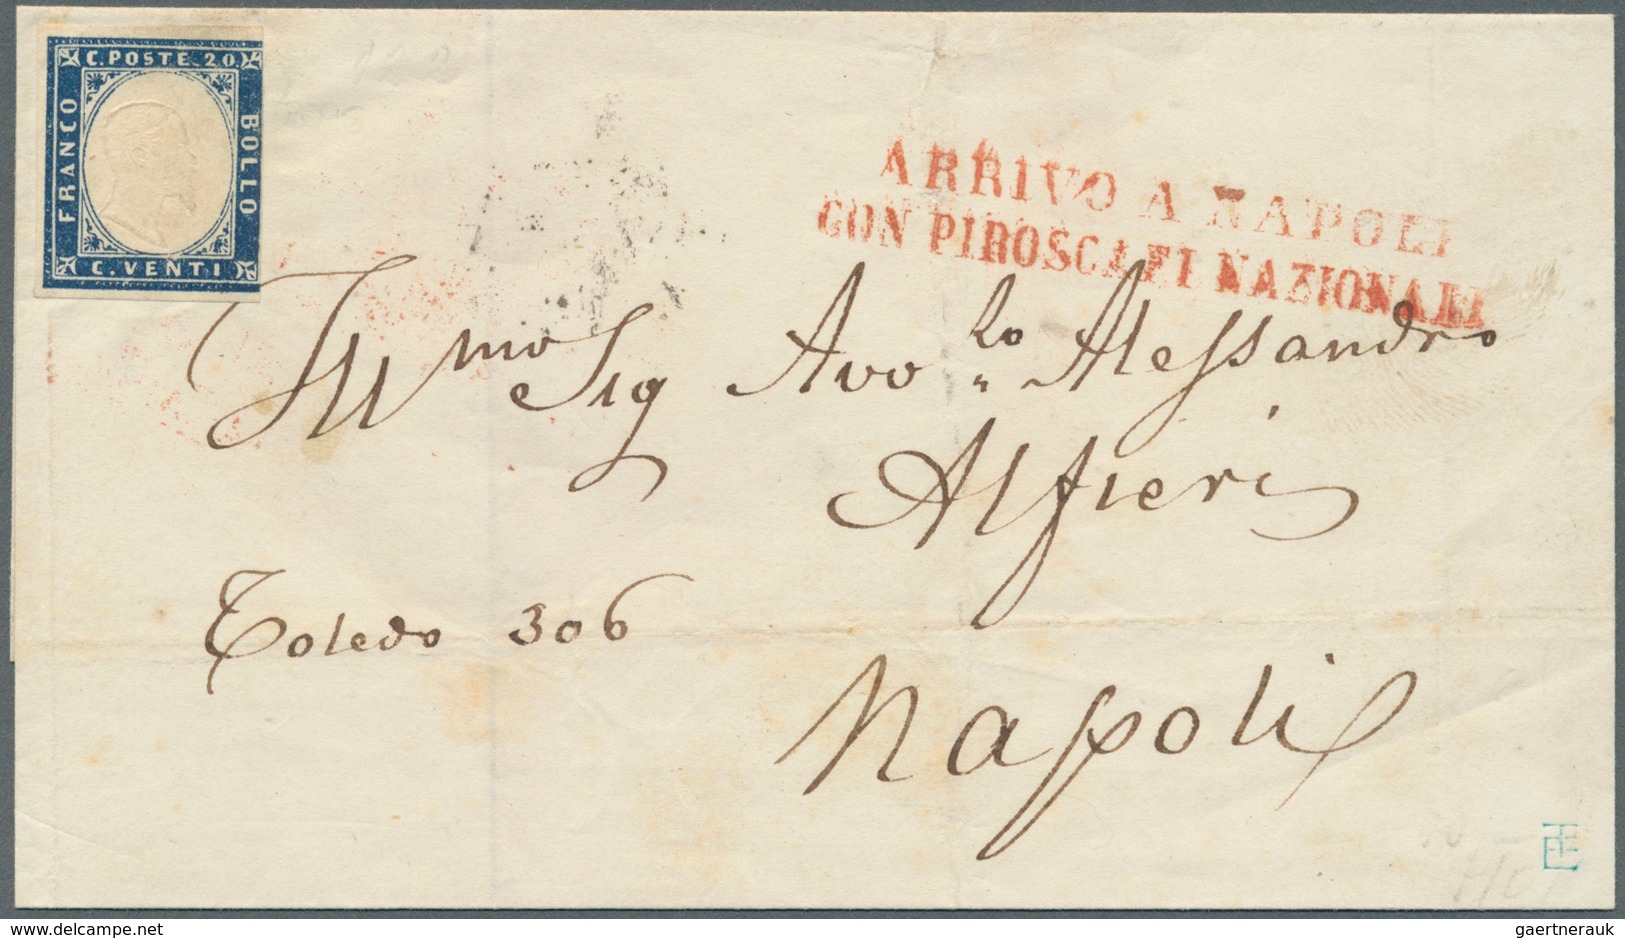 C. POSTE. 20
FRANCO
BOLLO
C. VENTI
ARRIVO A NAPOLI
CON PIROSCAFI NAZIONALI
Ill.mo Sig Avv.to Alessandro
Alfieri
Toledo 306
Napoli
delcampe.net
gaertnerauk